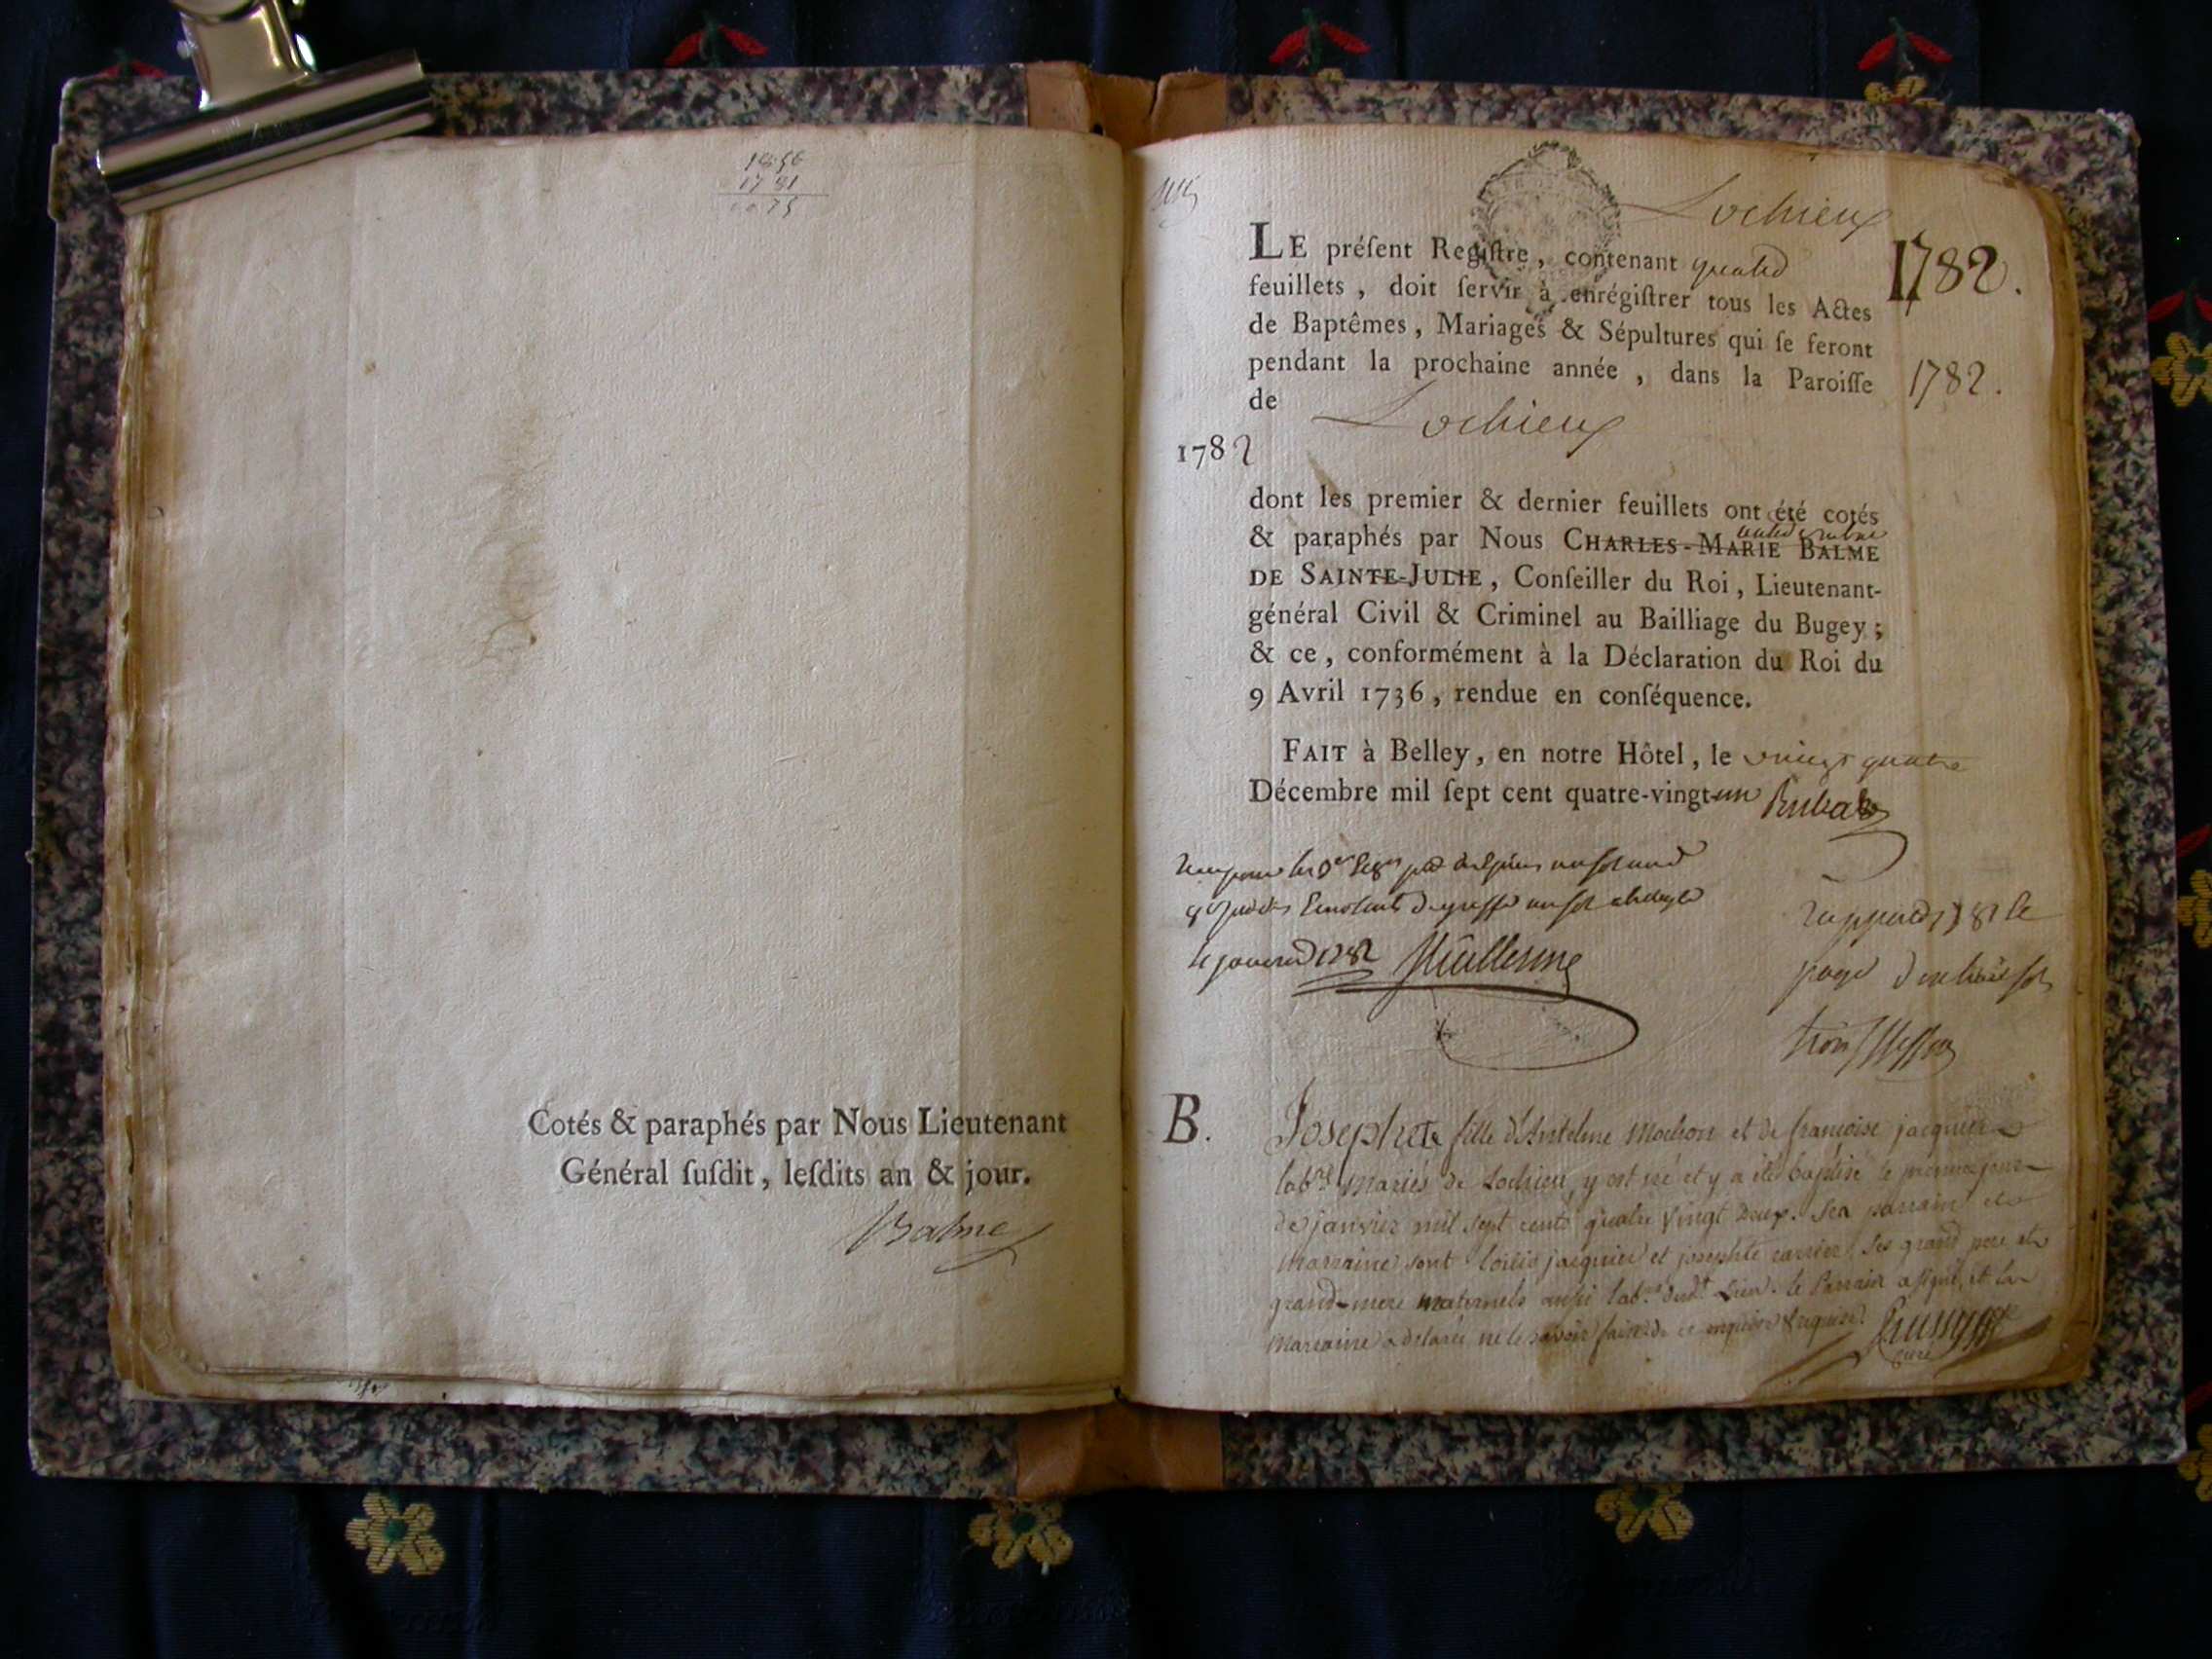 1856
1781
0075
Cotés & paraphés par Nous Lieutenant
Général ſuſdit, leſdits an & jour.
Balme
Lochieu
LE préſent Regiſtre, contenant quatre
1782.
feuillets, doit ſervir à enrégiſtrer tous les Actes
de Baptêmes, Mariages & Sépultures qui ſe feront
pendant la prochaine année, dans la Paroiſſe
1782.
de Lochieu
1782
dont les premier & dernier feuillets ont été cotés
& paraphés par Nous CHARLES-MARIE BALME
DE SAINTE-JULIE, Conſeiller du Roi, Lieutenant-
général Civil & Criminel au Bailliage du Bugey;
& ce, conformément à la Déclaration du Roi du
9 Avril 1736, rendue en conſéquence.
FAIT à Belley, en notre Hôtel, le vingt quatre
Décembre mil ſept cent quatre-vingt-un
B.
Josephte fille d'Antelme Mochon et de françoise jacquier
lab.rs mariés de Lochieu, y est né et y a été baptisé le premier jour
de janvier mil sept cents quatre vingt deux. Ses parrain et
marraine sont loüis jacquier et josephte carrier, ses grand pere et
grand-mere maternels aussi lab.rs dud.t Lieu. le Parrain a signé, et la
marraine a déclaré ne le savoir faire de ce enquise & requise.
curé